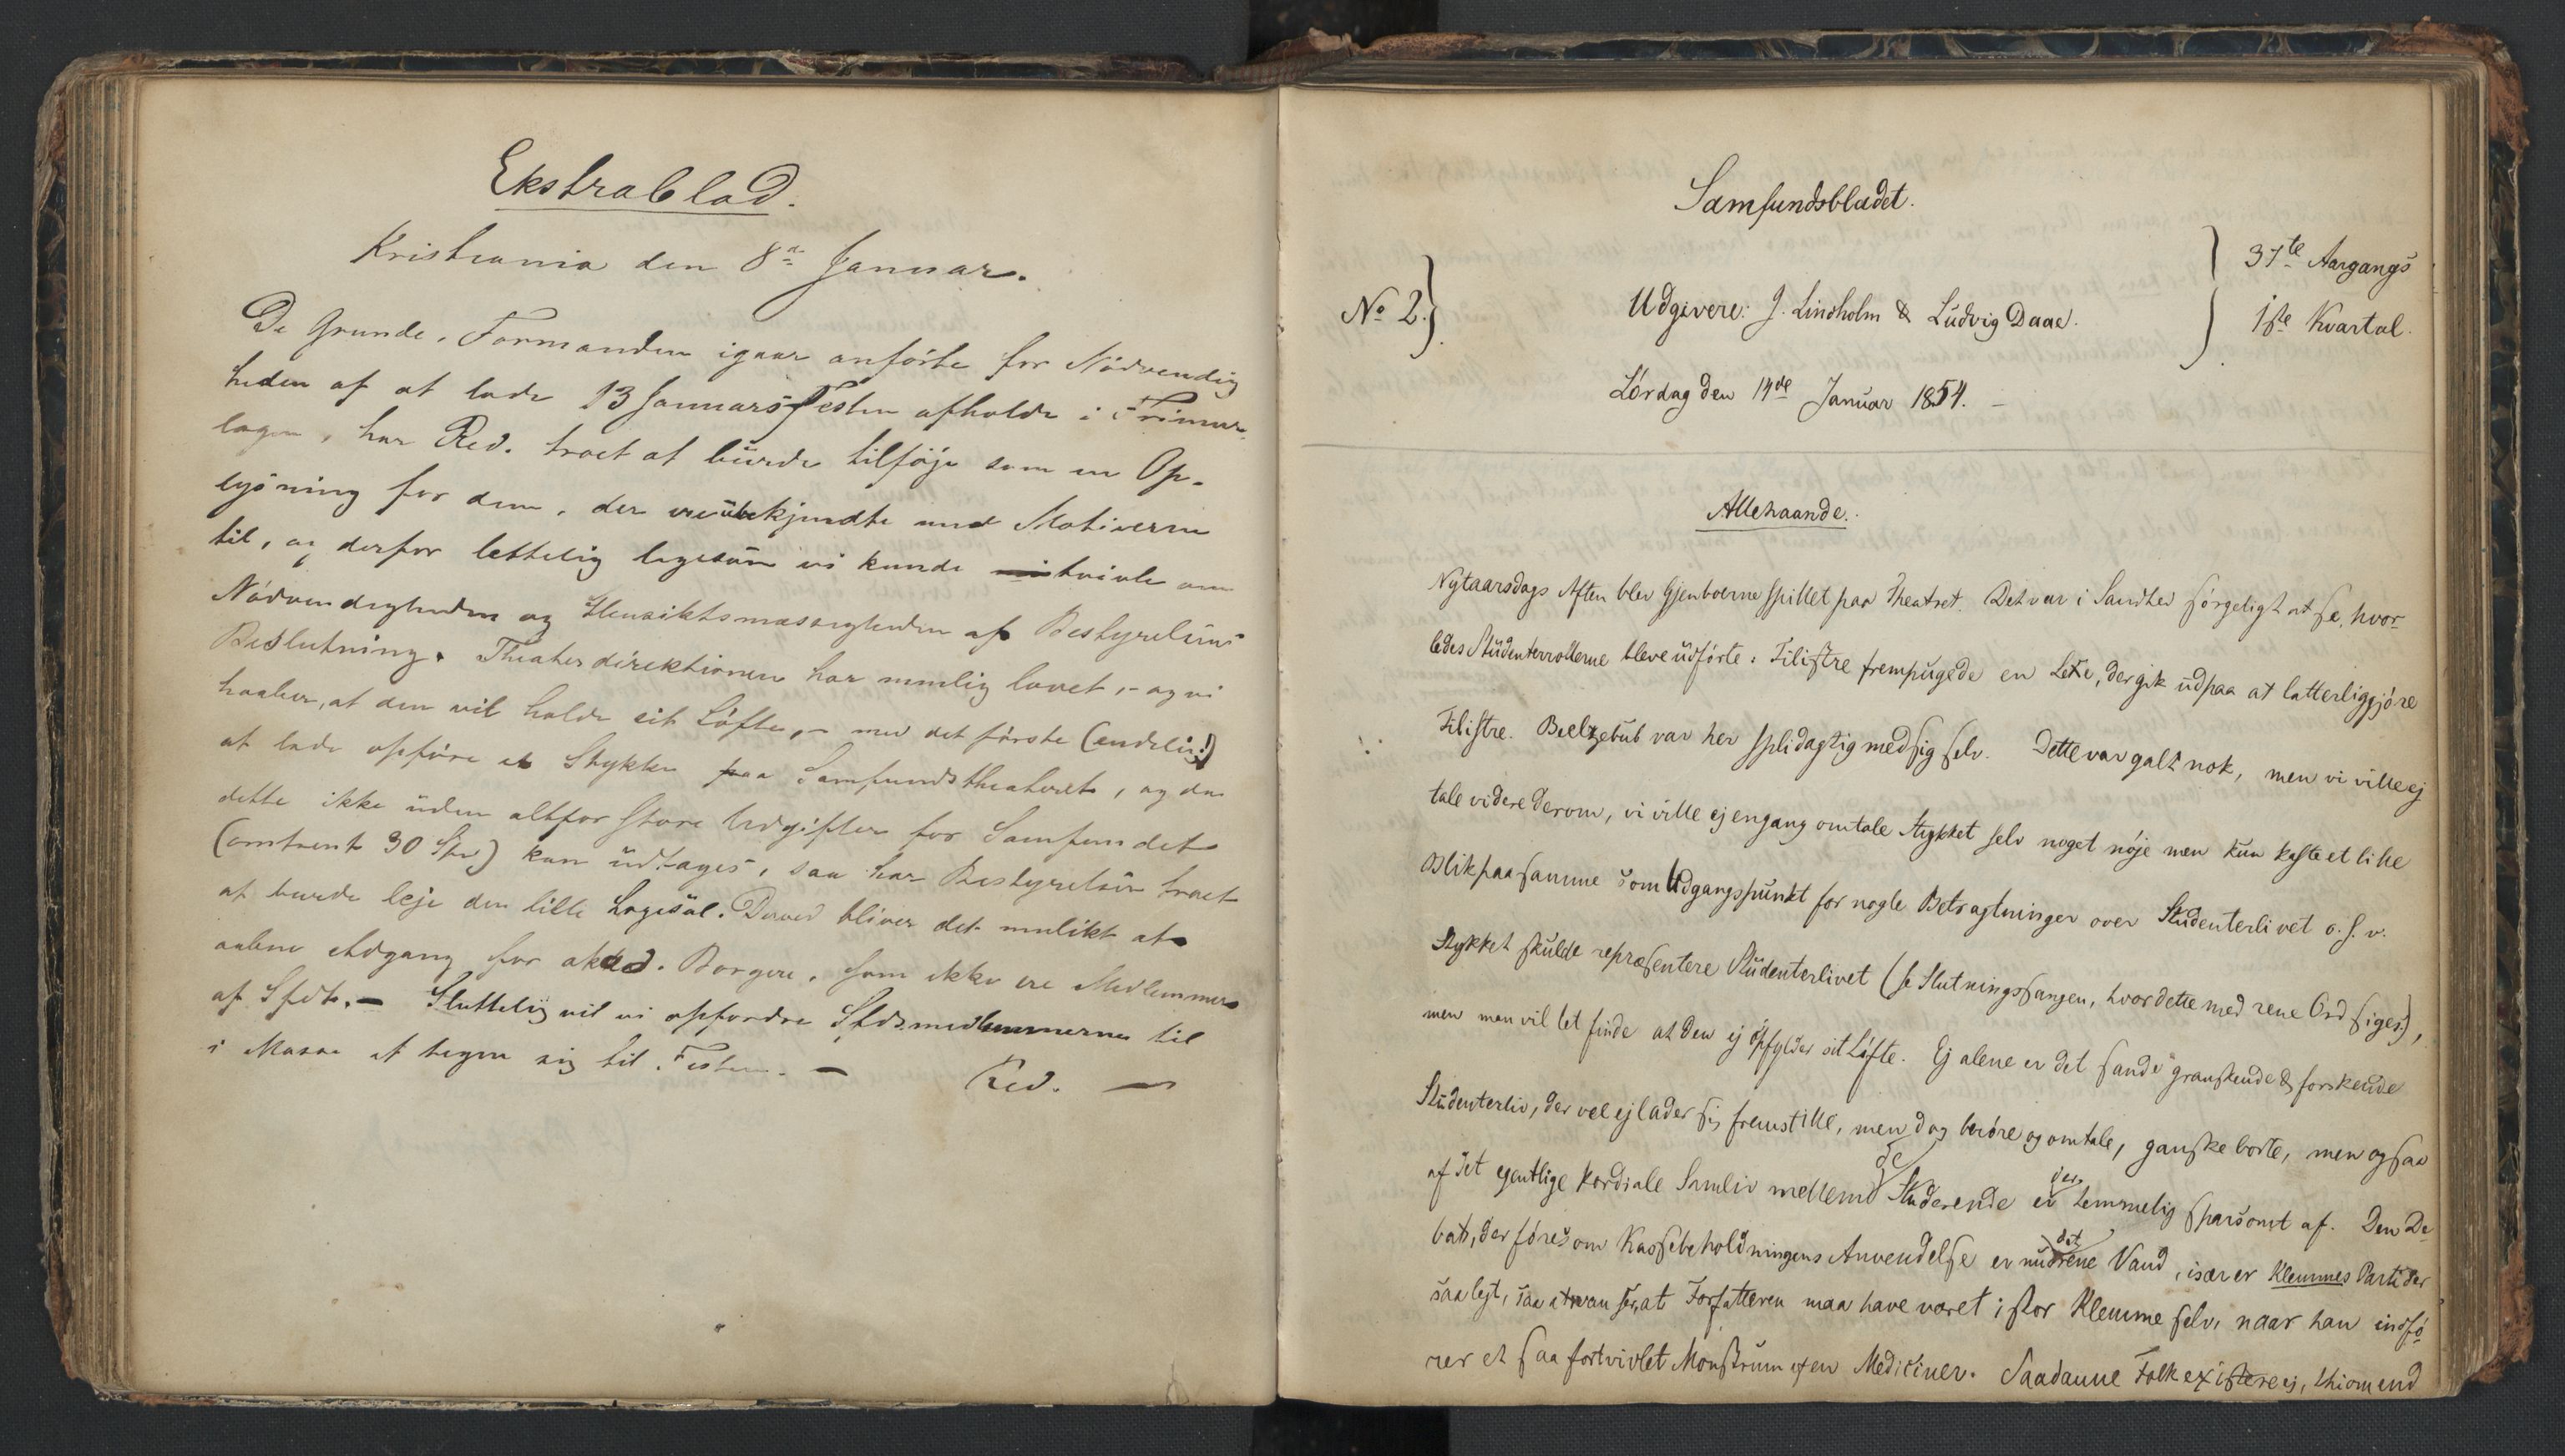 Ekstrablad.
Kristiania den 8de Januar.
De Grunde, Formanden igaar anförte for Nödvendig
heden af at lade 13 Januarsfesten afholde i Frimur
logen, har Red. troet at burde tilföje som en Op-
lysning for dem, der ere ubekjendte med Motiverne
til, og derfor lettelig ligesom vi kunde tvivle om
Nödvendigheden og Hensiktsmæssigheden af Bestyrelsens
Beslutning. Theaterdirektionen har nemlig lovet, - og vi
haaber, at den vil holde sit Löfte, - med det förste (endelig!)
at lade opföre et Stykke paa Samfundstheateret, og da
dette ikke uden altfor store Udgifter for Samfundet
(omtrent 30 Spd) kan udtages, saa har Bestyrelsen troet
at burde leje den lille Logesal. Derved bliver det mulikt at
aabne Adgang for akad. Borgere, som ikke ere Medlemmer
af Sfdt. - Sluttelig vil vi opfordre Sfdsmedlemmerne til
i Masse at tegne sig til Festen. -
Red. -
Samfundsbladet.
No 2.
Udgivere: J. Lindholm & Ludvig Daae.
37te Aargangs
1ste Kvartal.
Lördag den 14de Januar 1854. -
Allehaande.
Nytaarsdags Aften blev Gjenboerne spillet paa Theatret. Det var i Sandhed sörgeligt at se, hvor-
ledes Studenterrollerne bleve udförte: Filistre frempugede en Lexe, der gik ud paa at latterliggjöre
Filistre. Beelzebub var her splidagtig med sig selv. Dette var galt nok, men vi ville ej
tale videre derom, vi ville ej engang omtale Stykket selv noget nöje men kun kaste et lille
Blik paa samme som Udgangspunkt for nogle Betragtninger over Studenterlivet o. s. v.
Stykket skulde repræsentere Studenterlivet (se Slutningssangen, hvor dette med rene Ord siges),
men man vil let finde at den ej opfylder sit Löfte. Ej alene er det sande granskende & forskende
Studenterliv, der vel ej lader sig fremstille, men dog beröre og omtale, ganske borte, men ogsaa
af det egentlige kordiale Samliv mellem de Studerende er der temmelig sparsomt af. Den De
bat, der föres om Kassebeholdningens Anvendelse er det rene Vand, især er Klemmes Parti der
saa lejt, saa at man ser, at Forfatteren maa have været i stor Klemme selv, naar han indfö
rer et saa fortvivlet Monstrum af en Mediciner. Saadanne Folk existere ej, thi om end